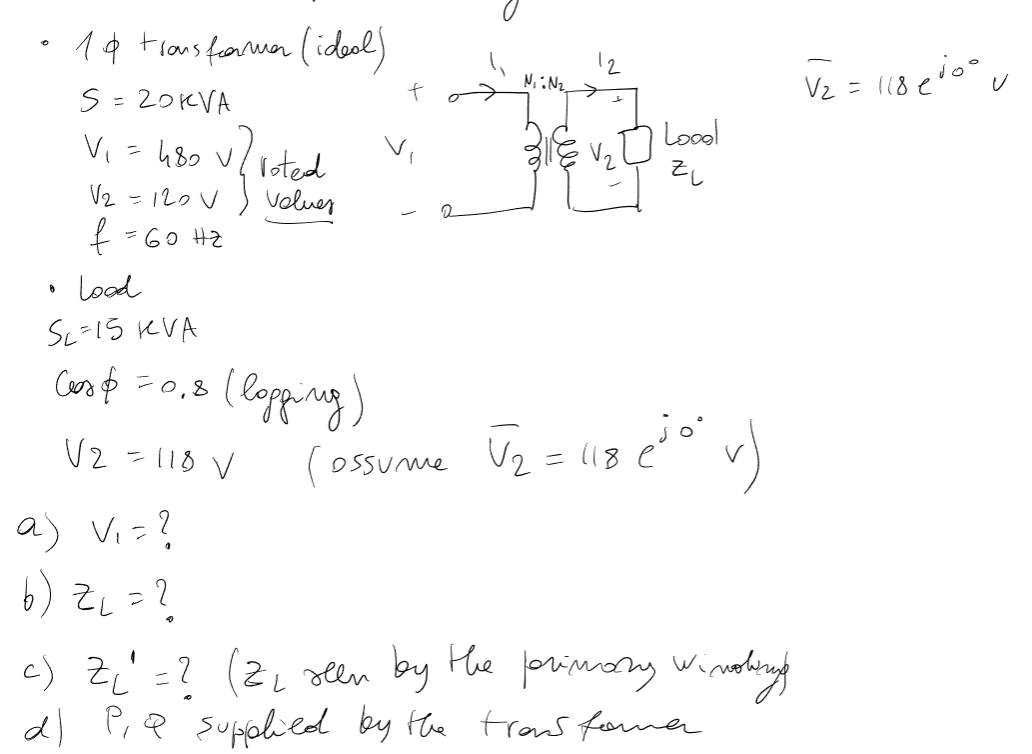 • 1 ϕ transformer (ideal)
S = 20 KVA
V1 = 480 V
V2 = 120 V
rated values
f = 60 Hz
+ I1 N1:N2 I2
V1 + V2 - Load ZL
-
V̅2 = 118 e^j0° V
• Load
SL=15 KVA
Cosϕ = 0.8 (lagging)
V2 = 118 V (assume V̅2 = 118 e^j0° V)
a) V1 = ?
b) ZL = ?
c) ZL' = ? (ZL seen by the primary windings)
d) P, Q supplied by the transformer